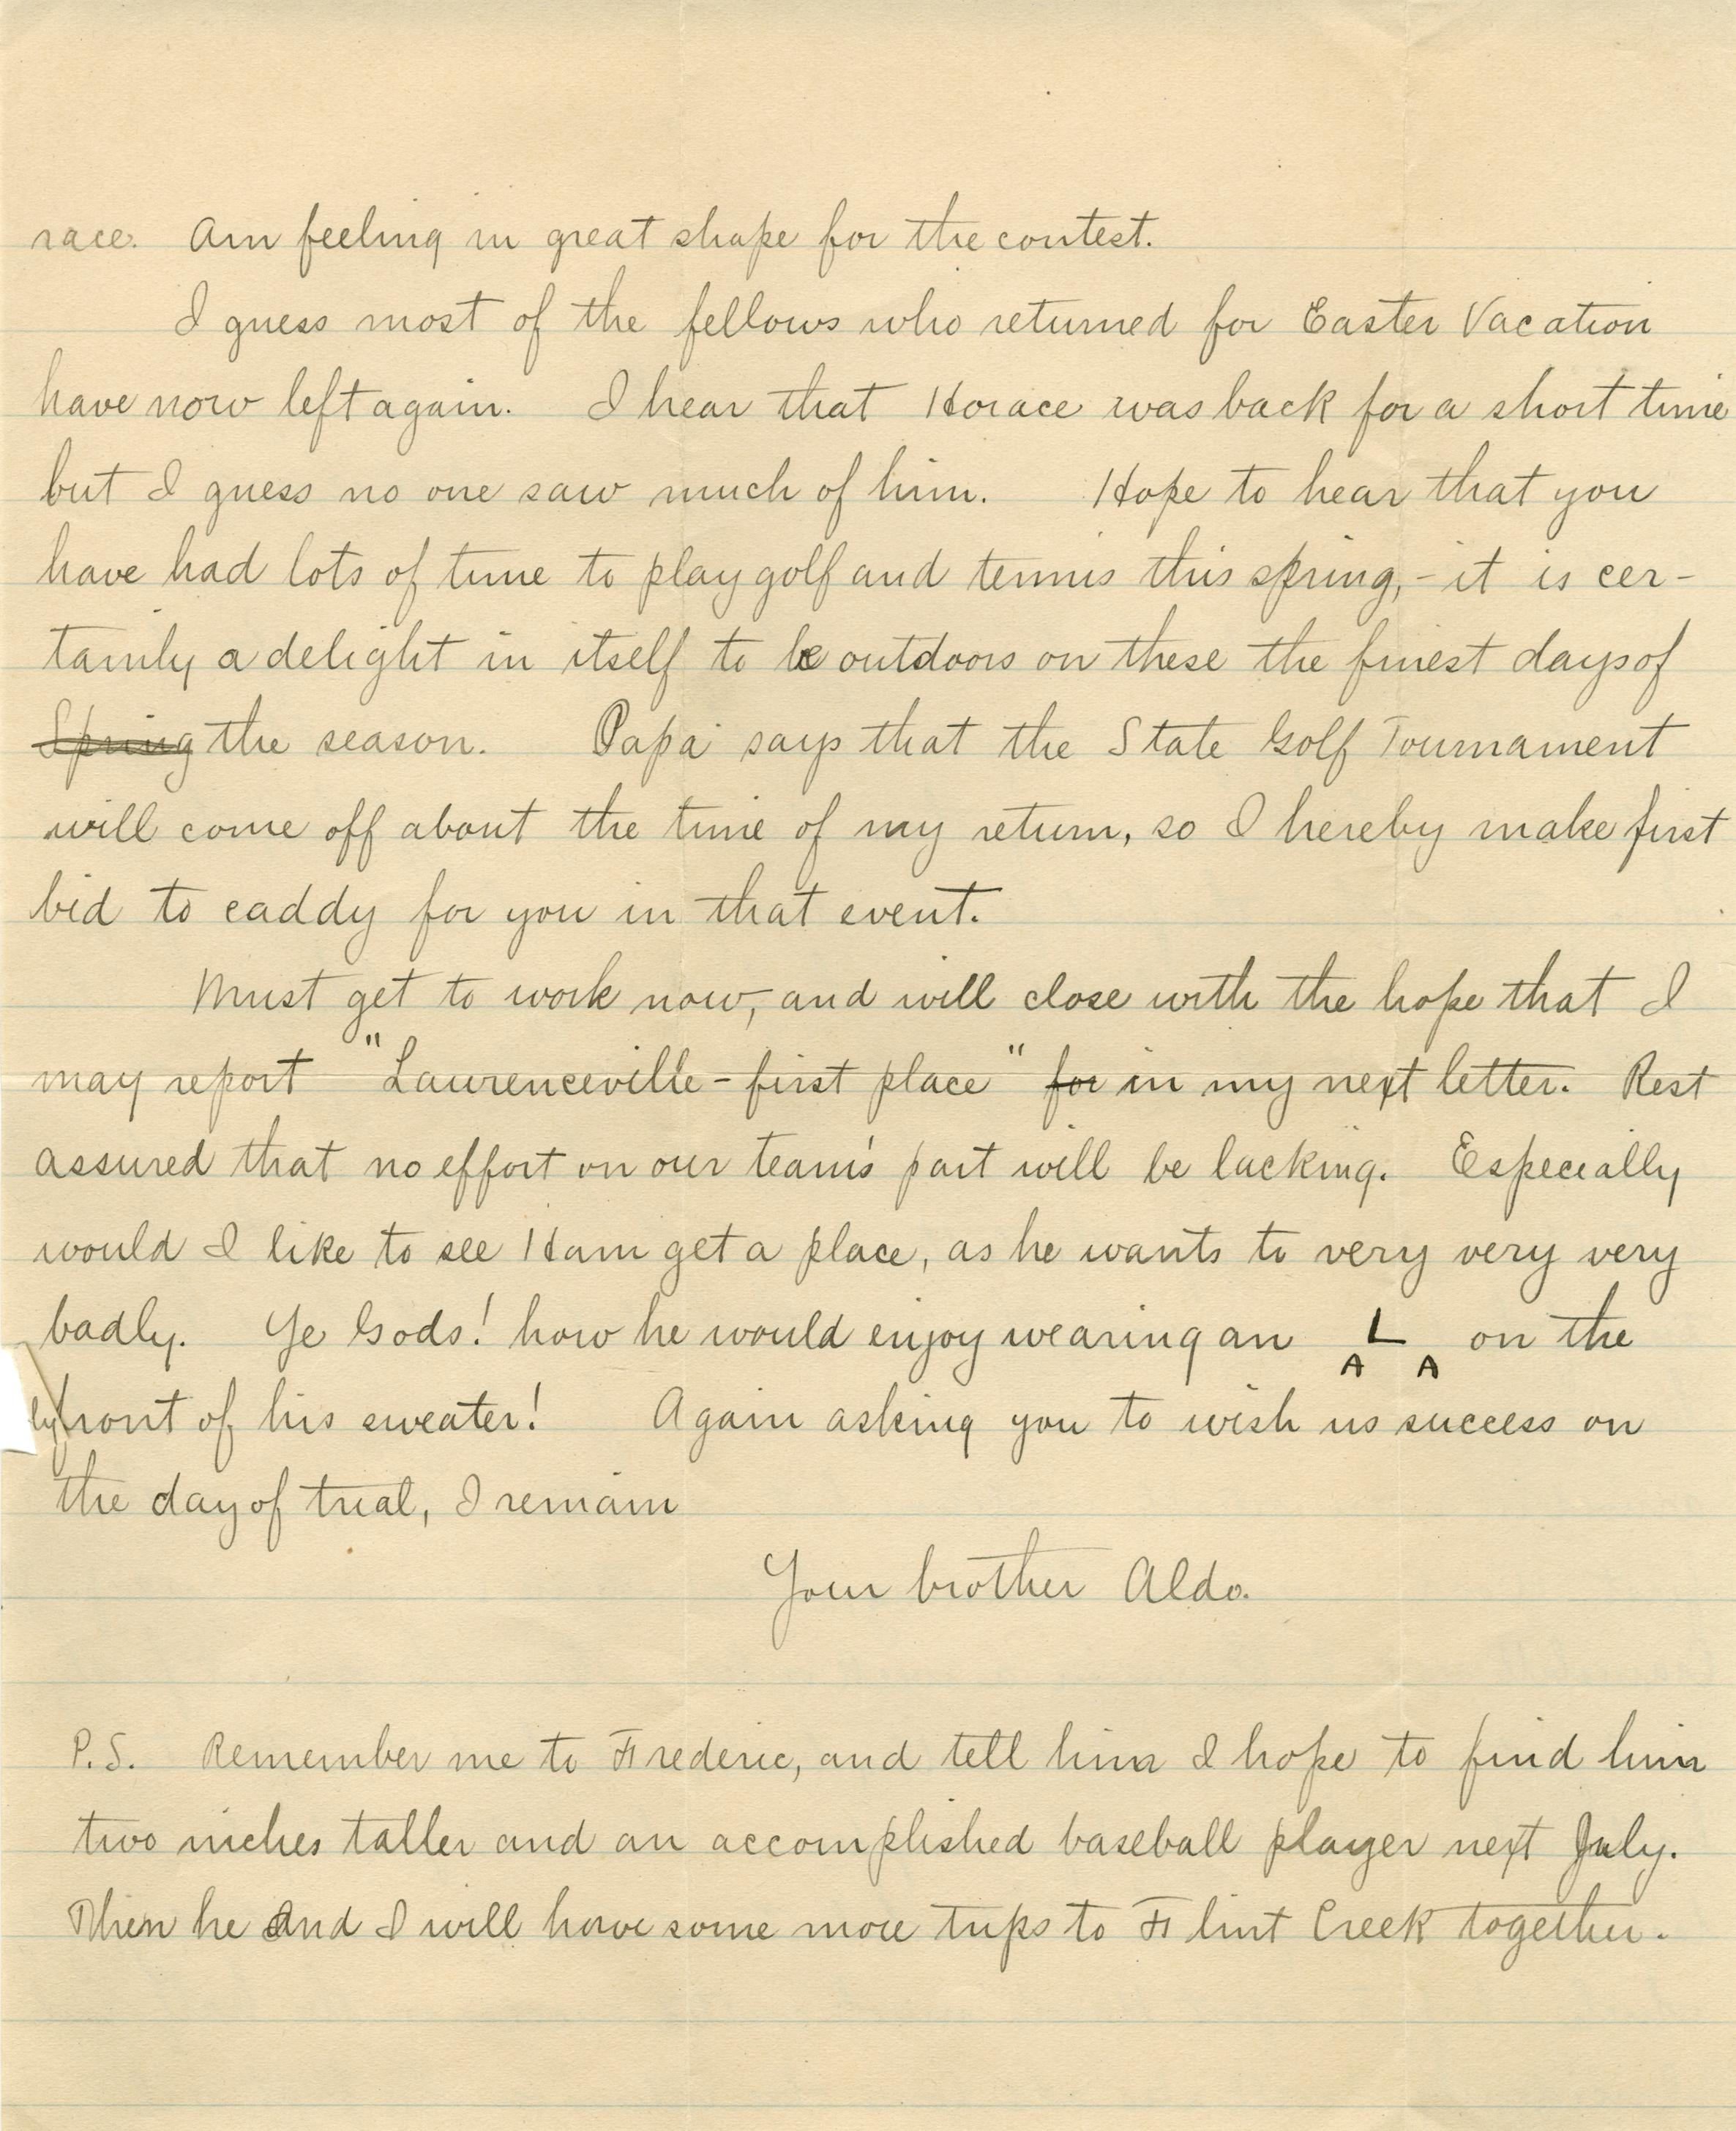 race. Am feeling in great shape for the contest.
I guess most of the fellows who returned for Easter Vacation
have now left again. I hear that Horace was back for a short time
but I guess no one saw much of him. Hope to hear that you
have had lots of time to play golf and tennis this spring, - it is cer-
tainly a delight in itself to be outdoors on these the finest days of
Spring the season. Papa says that the State Golf Tournament
will come off about the time of my return, so I hereby make first
bid to caddy for you in that event.
Must get to work now, and will close with the hope that I
may report "Lawrenceville - first place" for in my next letter. Rest
assured that no effort on our team's part will be lacking. Especially
would I like to see Ham get a place, as he wants to very very very
badly. Ye Gods! how he would enjoy wearing an A L A on the
front of his sweater! Again asking you to wish us success on
the day of trial, I remain
Your brother Aldo.
P.S. Remember me to Frederic, and tell him I hope to find him
two inches taller and an accomplished baseball player next July.
Then he and I will have some more trips to Flint Creek together.